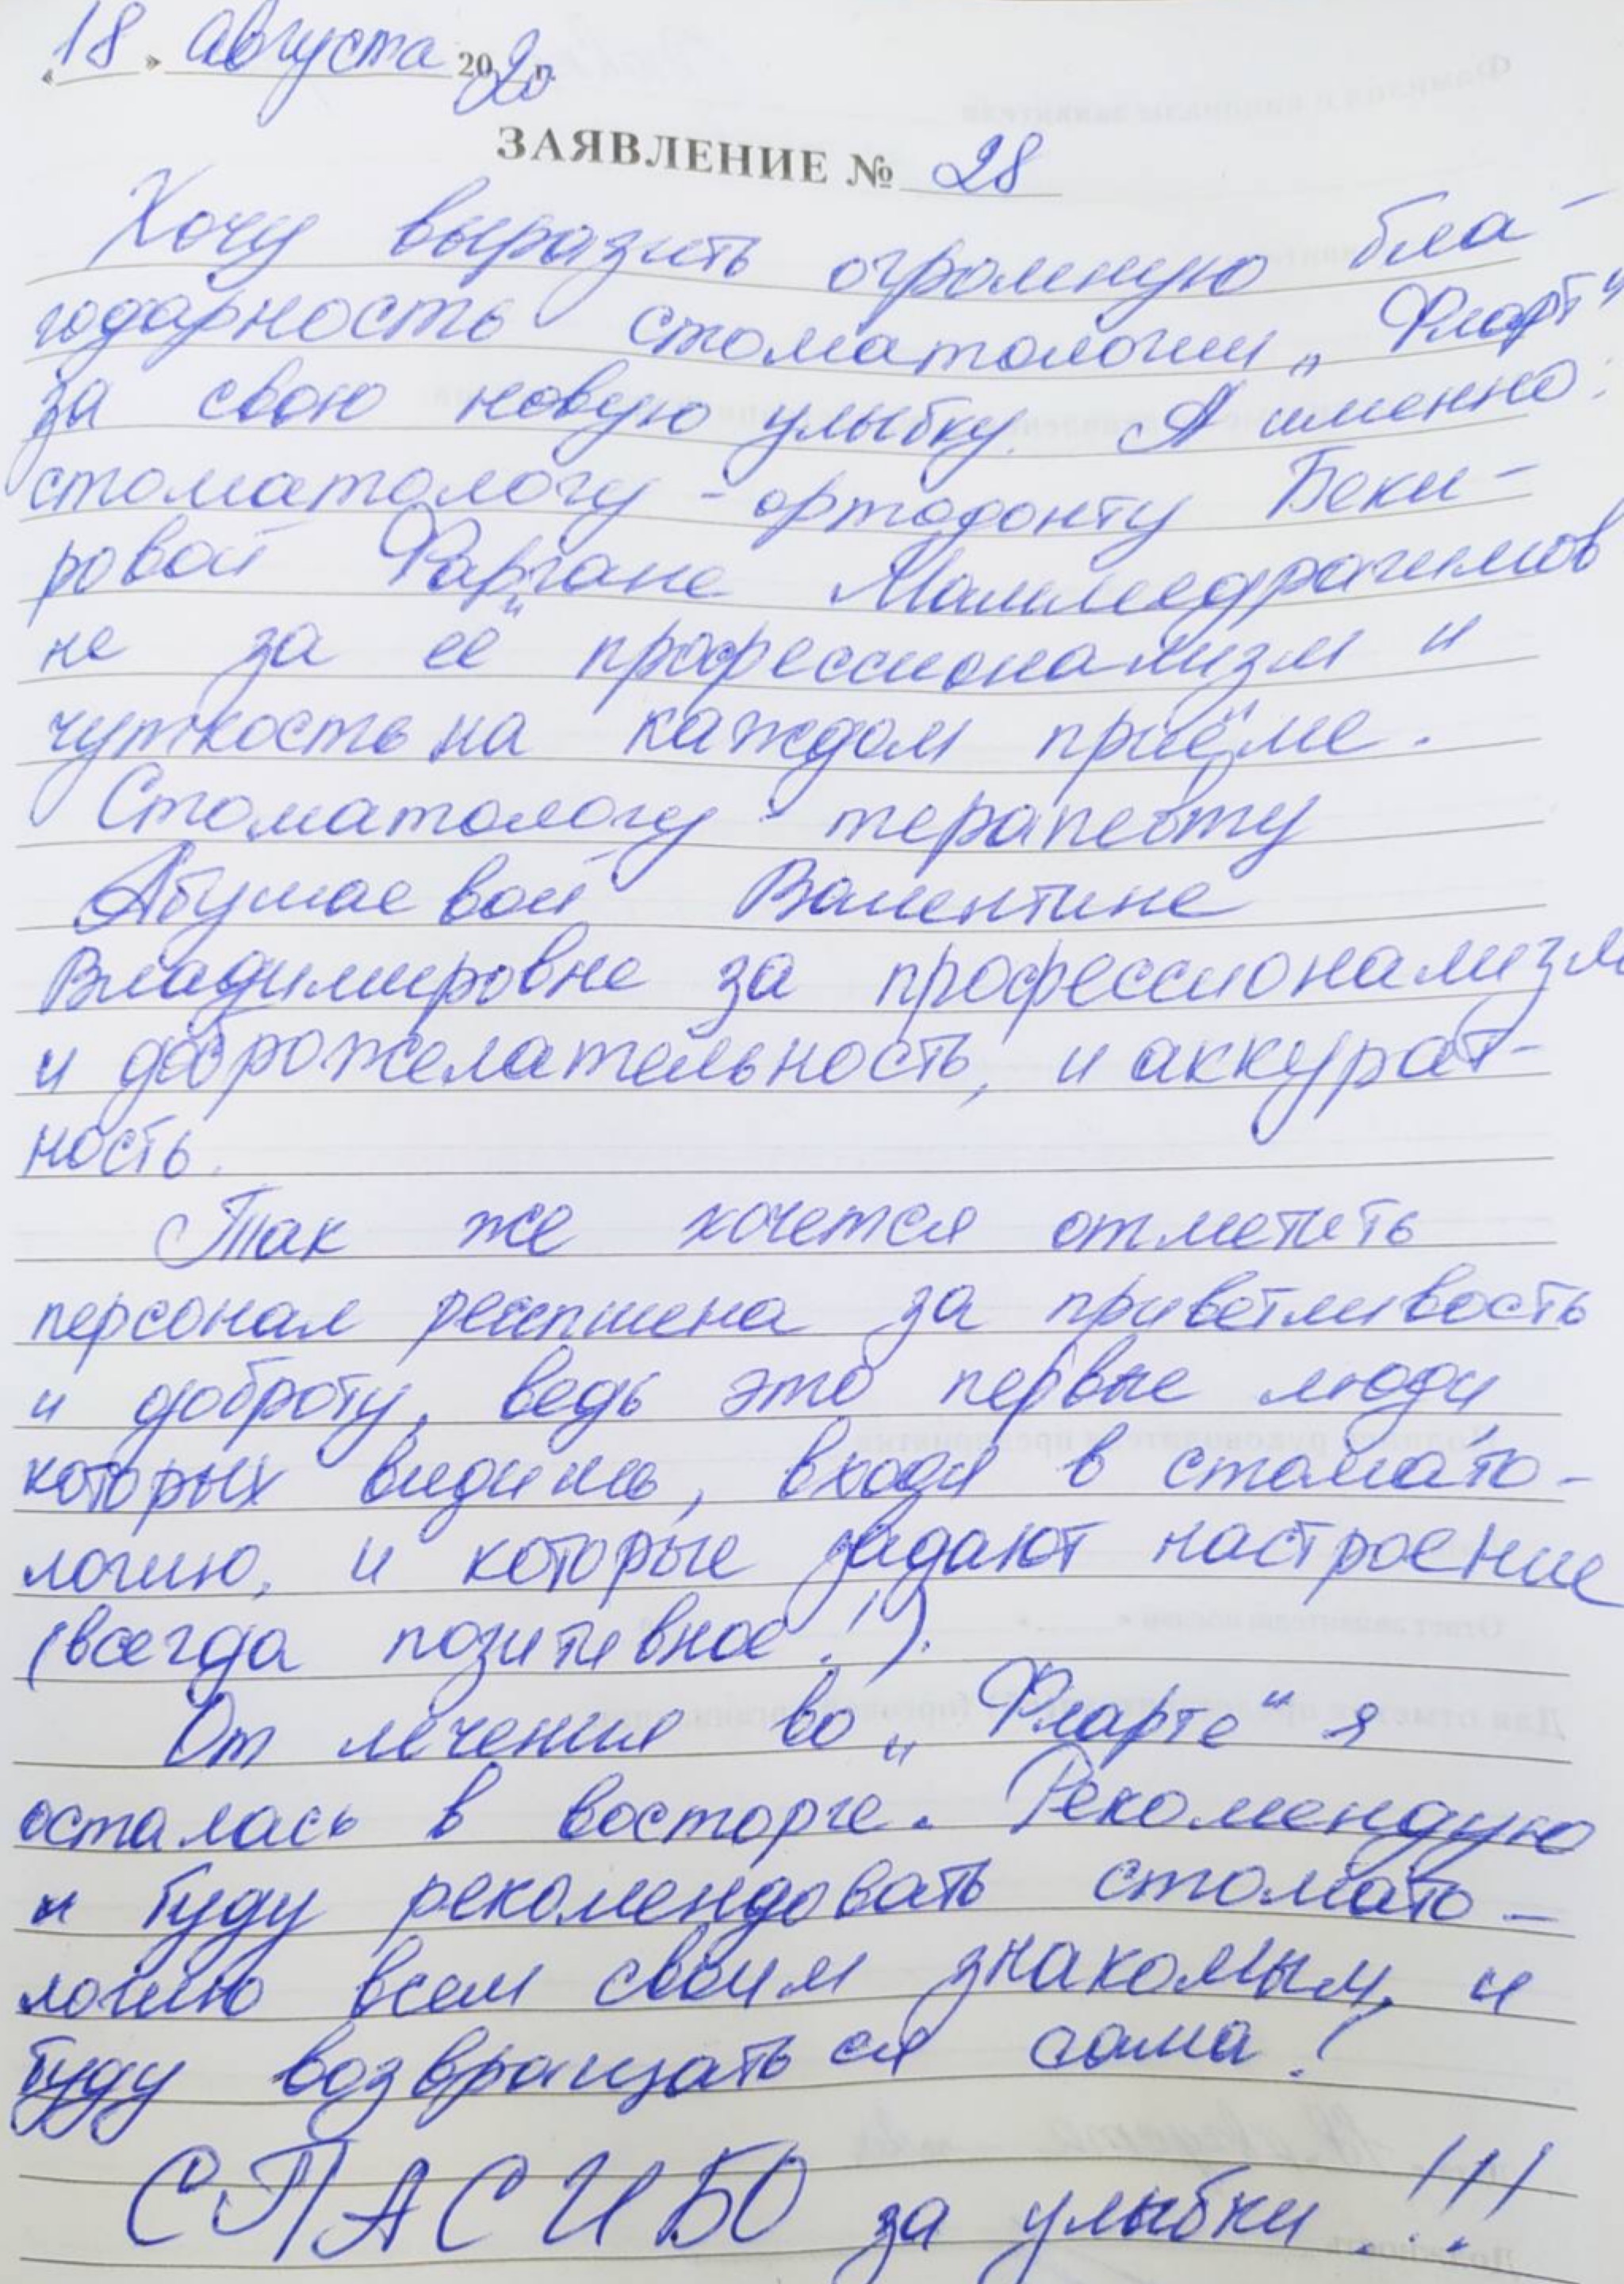 «18» августа 2020 г.
ЗАЯВЛЕНИЕ № 28
Хочу выразить огромную бла-
годарность стоматологии „Фларт"
за свою новую улыбку. А именно:
стоматологу-ортодонту Беки-
ровой Фаргане Маммедрагимов
не за её профессионализм и
чуткость на каждом приёме.
Стоматологу-терапевту
Абушаевой Валентине
Владимировне за профессионализм
и доброжелательность, и аккурат-
ность.
Так же хочется отметить
персонал ресепшена за приветливость
и доброту, ведь это первые люди
которых видишь, входя в стомато-
логию, и которые задают настроение
(всегда позитивное!).
От лечения во „Фларте" я
осталась в восторге. Рекомендую
и буду рекомендовать стомато-
логию всем своим знакомым, и
буду возвращаться сама!
СПАСИБО за улыбки!!!